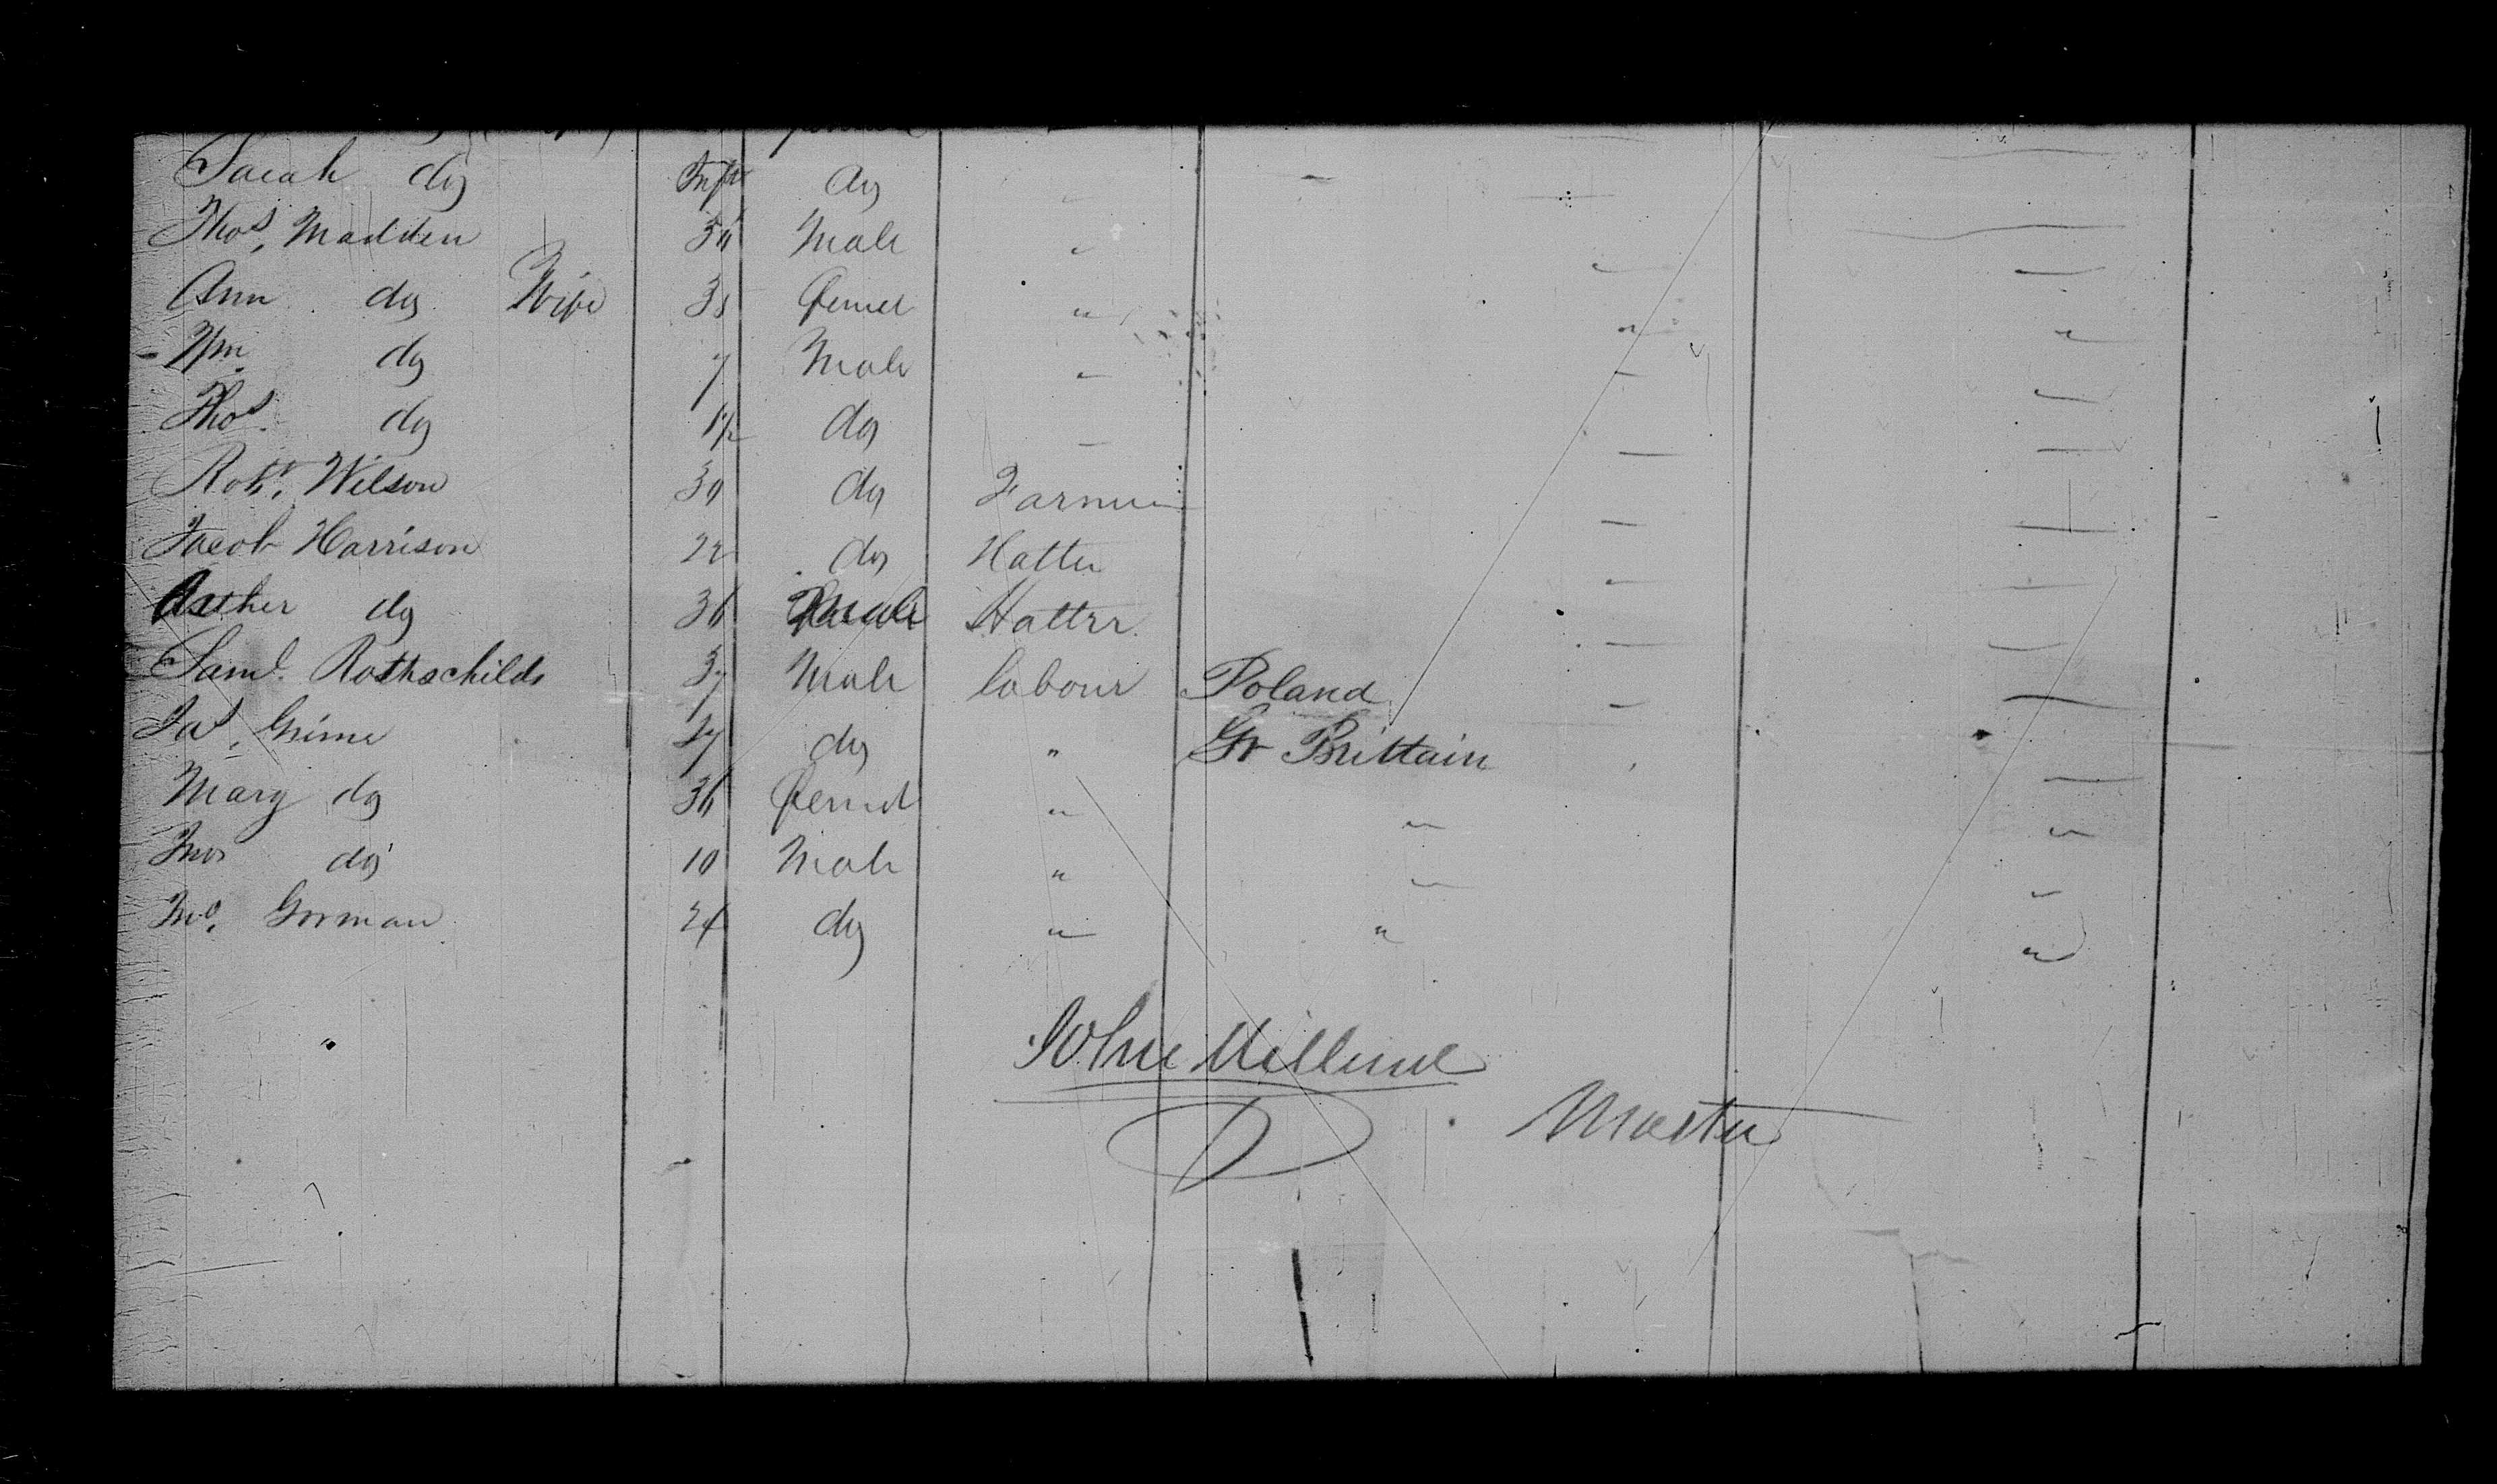 Sarah do Inft do
Thos. Madden Male "
Ann do Wife 35 Femel " " "
Wm. do 7 Male "
Thos. do 1 1/2 do
Robt. Wilson 30 do Farmer
Jacob Harrison 22 do Hatter
do 36 Hatter
Saml. Rothschilds 37 Male labour Poland
Jas. Grime 37 do " Gr Brittain
Mary do 36 Femel " " "
do 10 Male " " "
Jno. Gorman 24 do " " "
John
Master